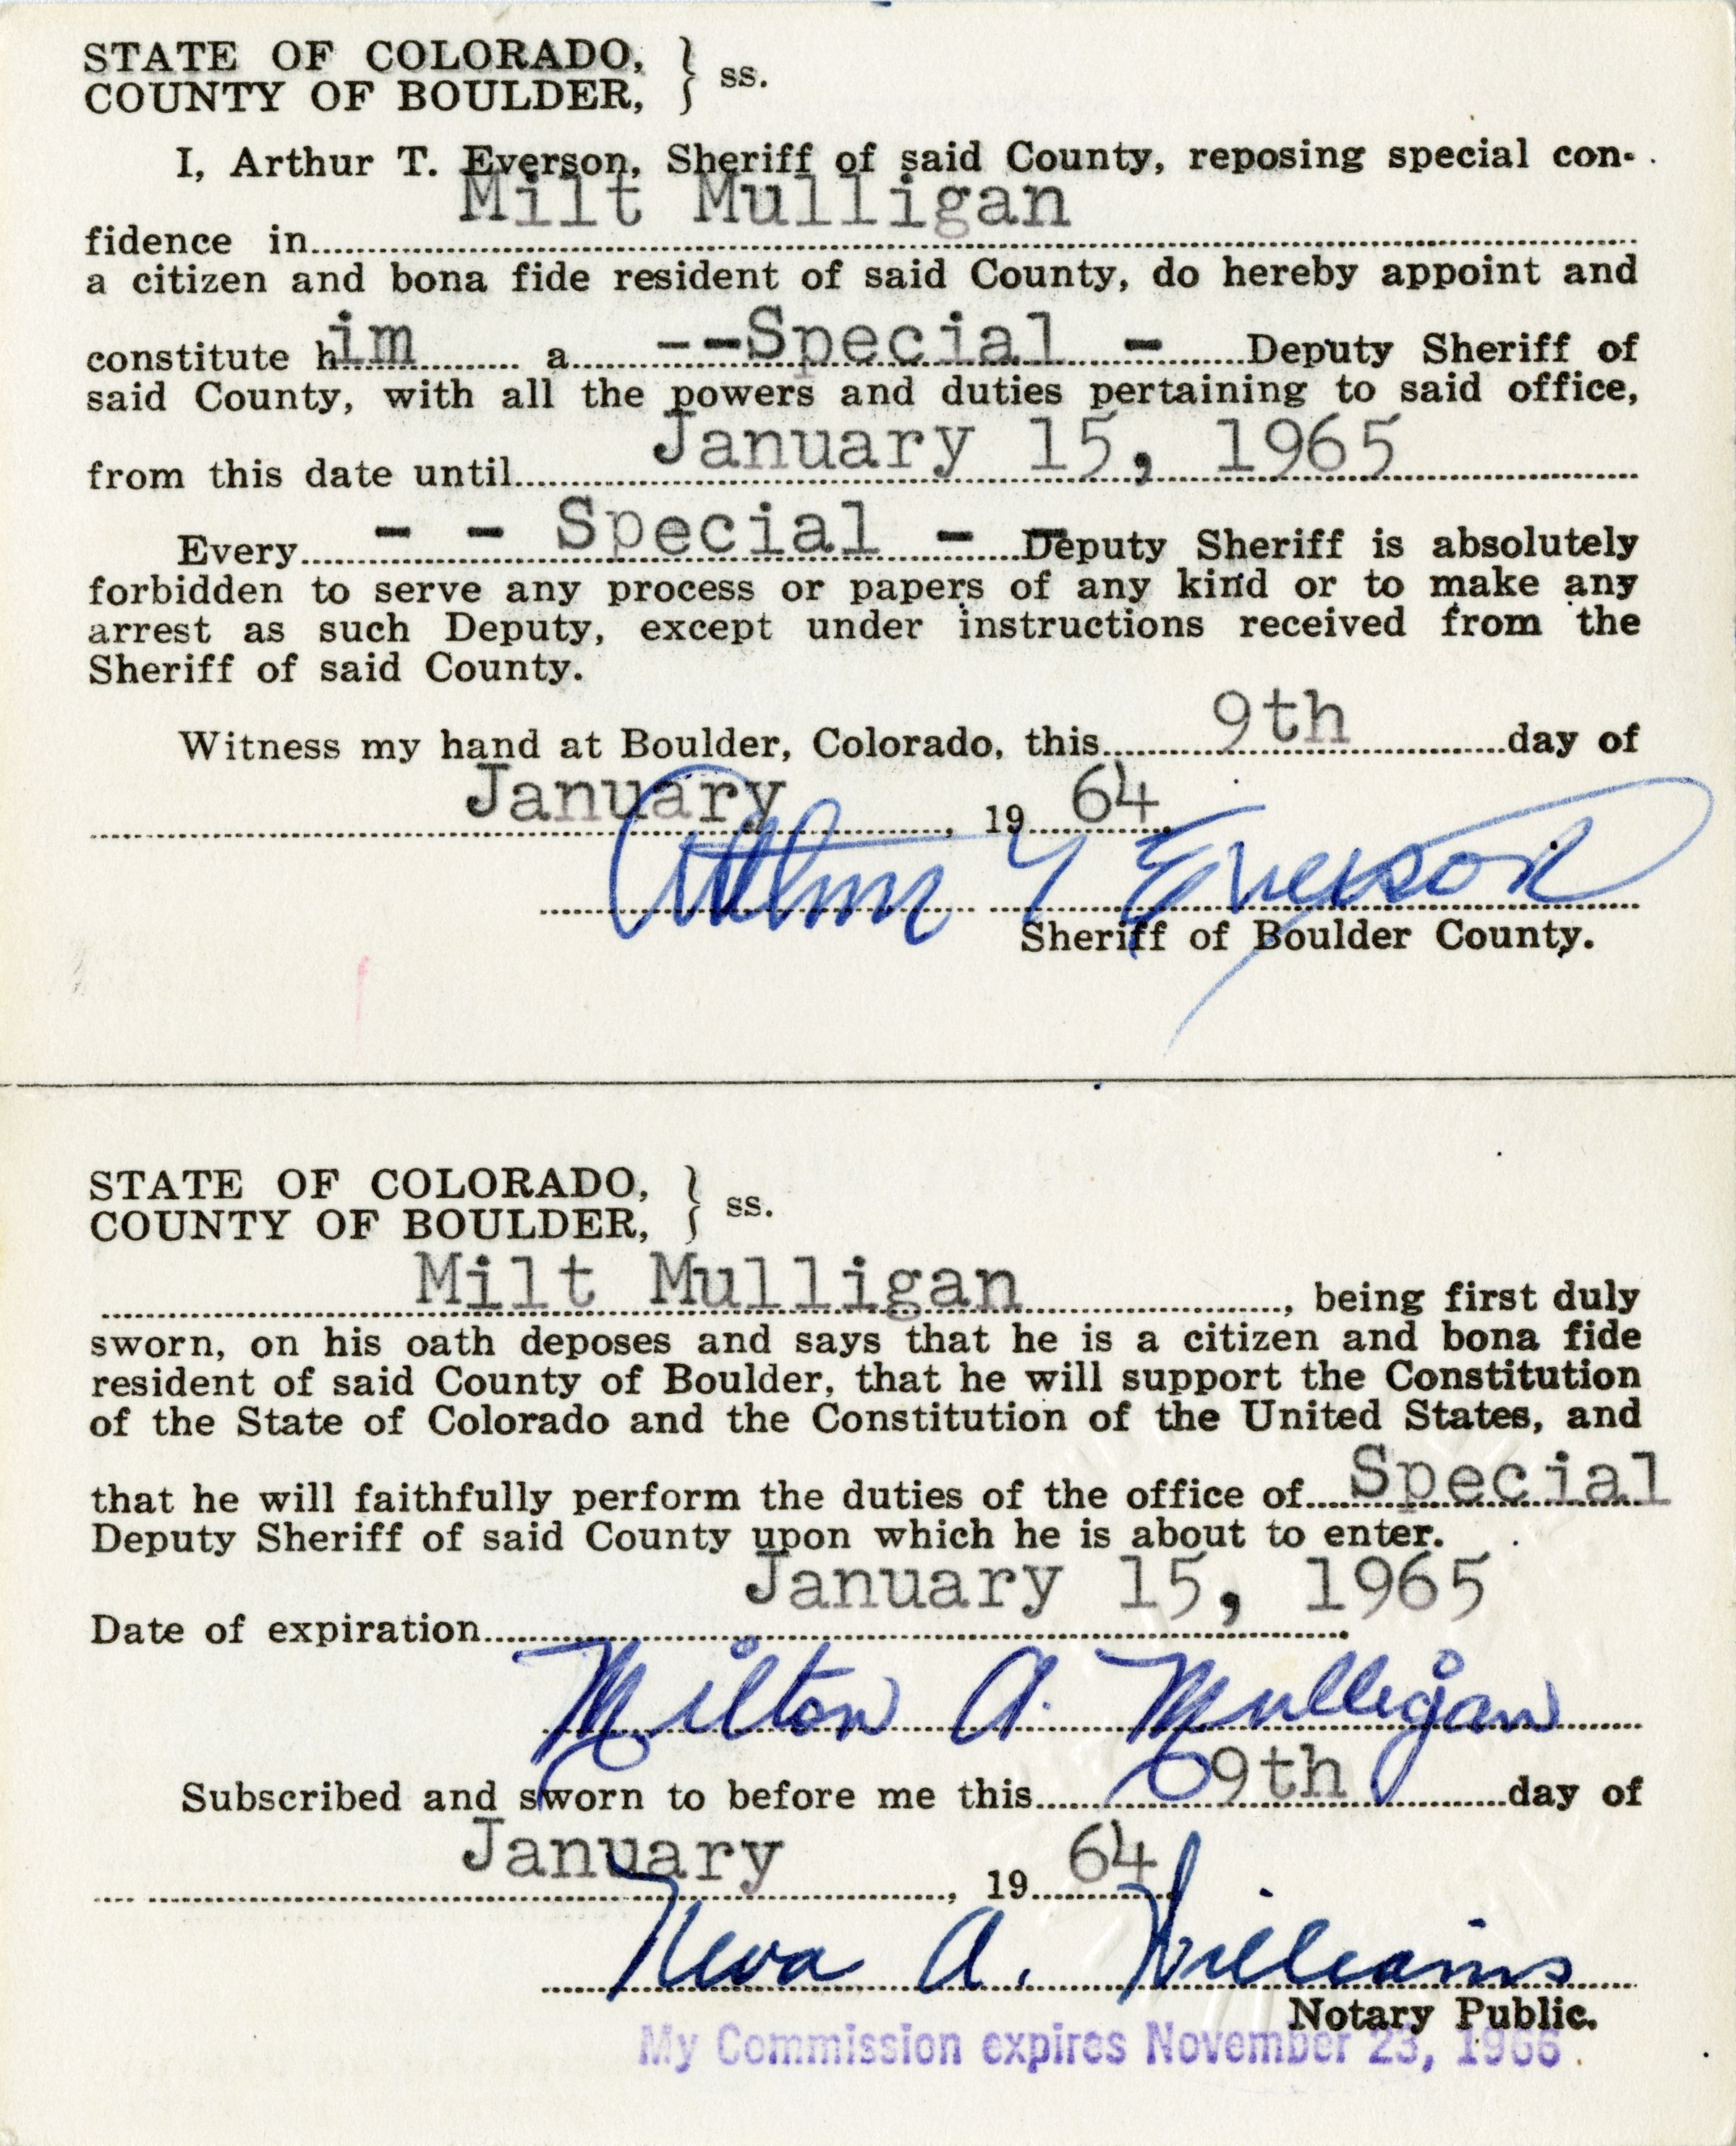 STATE OF COLORADO,
COUNTY OF BOULDER, } ss.
I, Arthur T. Everson, Sheriff of said County, reposing special con-
fidence in Milt Mulligan
a citizen and bona fide resident of said County, do hereby appoint and
constitute him a --Special - Deputy Sheriff of
said County, with all the powers and duties pertaining to said office,
from this date until January 15, 1965
Every - - Special - - Deputy Sheriff is absolutely
forbidden to serve any process or papers of any kind or to make any
arrest as such Deputy, except under instructions received from the
Sheriff of said County.
Witness my hand at Boulder, Colorado, this 9th day of
January, 19 64.
Arthur T Everson
Sheriff of Boulder County.
STATE OF COLORADO,
COUNTY OF BOULDER, } ss.
Milt Mulligan, being first duly
sworn, on his oath deposes and says that he is a citizen and bona fide
resident of said County of Boulder, that he will support the Constitution
of the State of Colorado and the Constitution of the United States, and
that he will faithfully perform the duties of the office of Special
Deputy Sheriff of said County upon which he is about to enter.
Date of expiration January 15, 1965.
Milton A. Mulligan
Subscribed and sworn to before me this 9th day of
January, 19 64.
Neva A. Williams
Notary Public.
My Commission expires November 23, 1966.